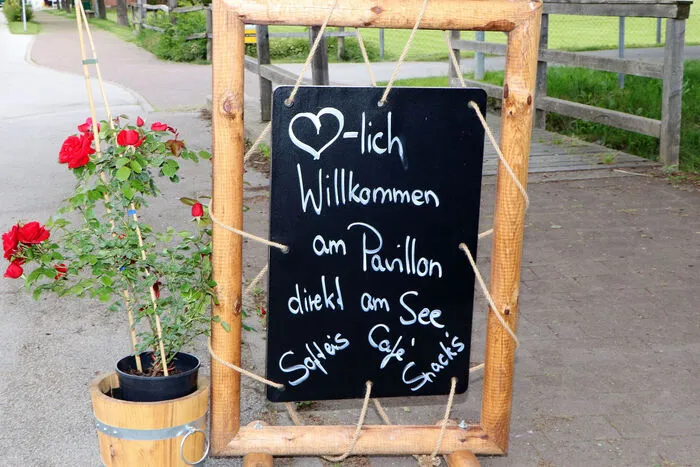 ♡-lich
Willkommen
am Pavillon
direkt am See
Softeis Café Snacks